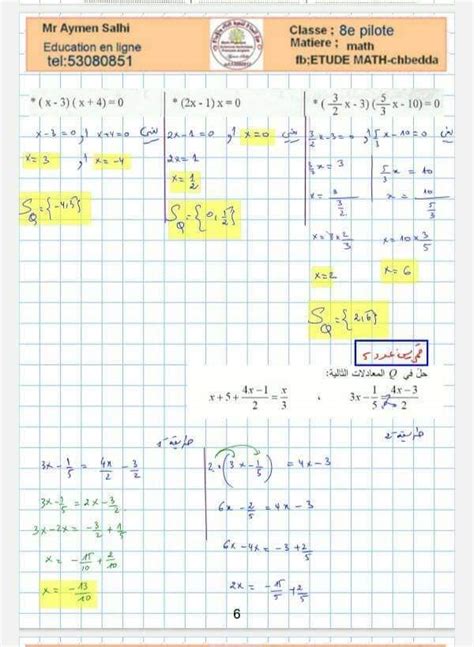 Mr Aymen Salhi
Education en ligne
tel:53080851
Classe ; 8e pilote
Matiere ; math
fb;ETUDE MATH-chbedda
* (x - 3) (x + 4) = 0
x - 3 = 0 أو x + 4 = 0 يعني
x = 3 أو x = -4
* (2x - 1) x = 0
2x - 1 = 0 أو x = 0 يعني
2x = 1
x = 1/2
S_Q = {0, 1/2}
* (3/2 x - 3) (5/3 x - 10) = 0
3/2 x - 3 = 0 أو 5/3 x - 10 = 0 يعني
3/2 x = 3 5/3 x = 10
x = 3 / (3/2) x = 10 / (5/3)
x = 3 x 2/3 x = 10 x 3/5
x = 2 x = 6
S_Q = {2, 6}
تمرين عدد 5
حل في Q المعادلات التالية:
x + 5 + (4x - 1)/2 = x/3 , 3x - 1/5 = (4x - 3)/2
طريقة 1-
3x - 1/5 = 4x/2 - 3/2
3x - 1/5 = 2x - 3/2
3x - 2x = -3/2 + 1/5
x = -15/10 + 2/10
x = -13/10
طريقة 2-
2 · (3x - 1/5) = 4x - 3
6x - 2/5 = 4x - 3
6x - 4x = -3 + 2/5
2x = -15/5 + 2/5
6